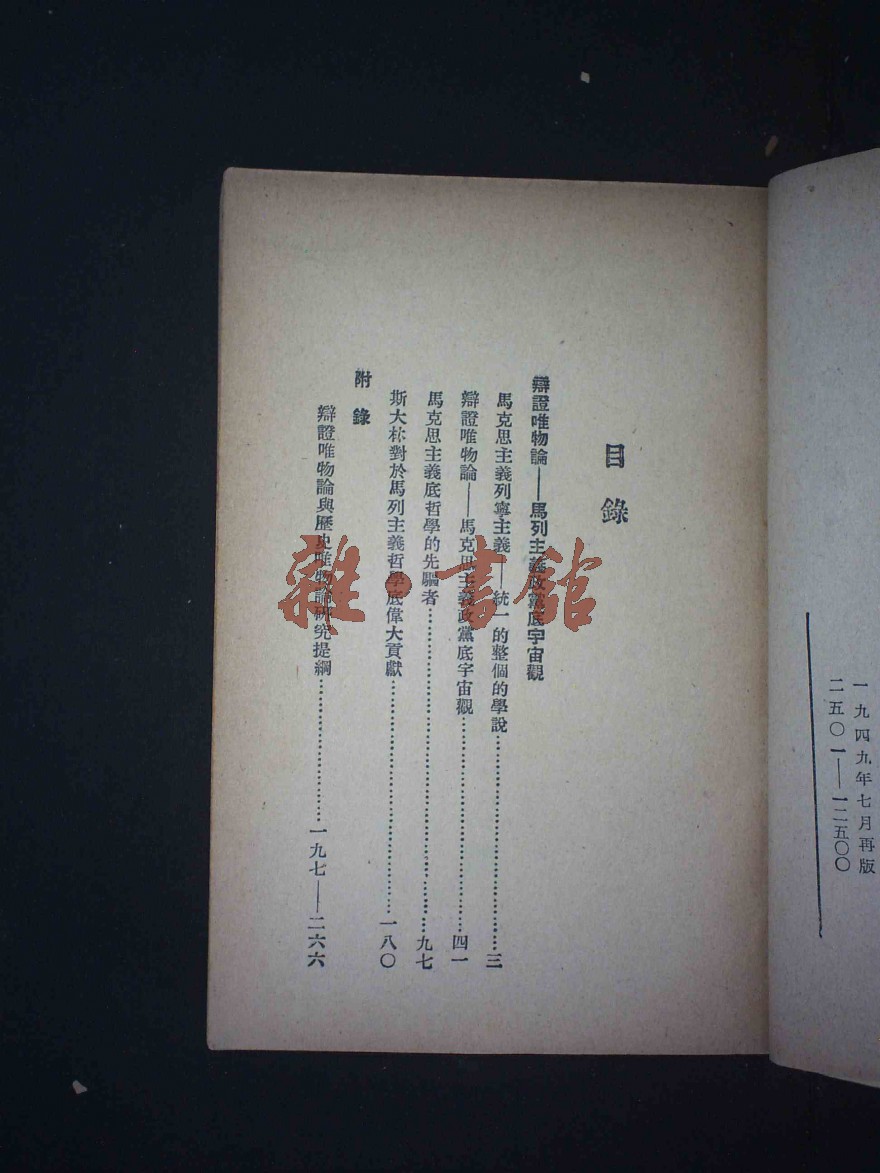 一九四九年七月再版
二五〇一——一二五〇〇
目錄
辯證唯物論——馬列主義政黨底宇宙觀
馬克思主義列寧主義——統一的整個的學說……三
辯證唯物論——馬克思主義政黨底宇宙觀……四一
馬克思主義底哲學的先驅者……九七
斯大林對於馬列主義哲學底偉大貢獻……一八〇
附錄
辯證唯物論與歷史唯物論研究提綱……一九七——二六六
雜·書館